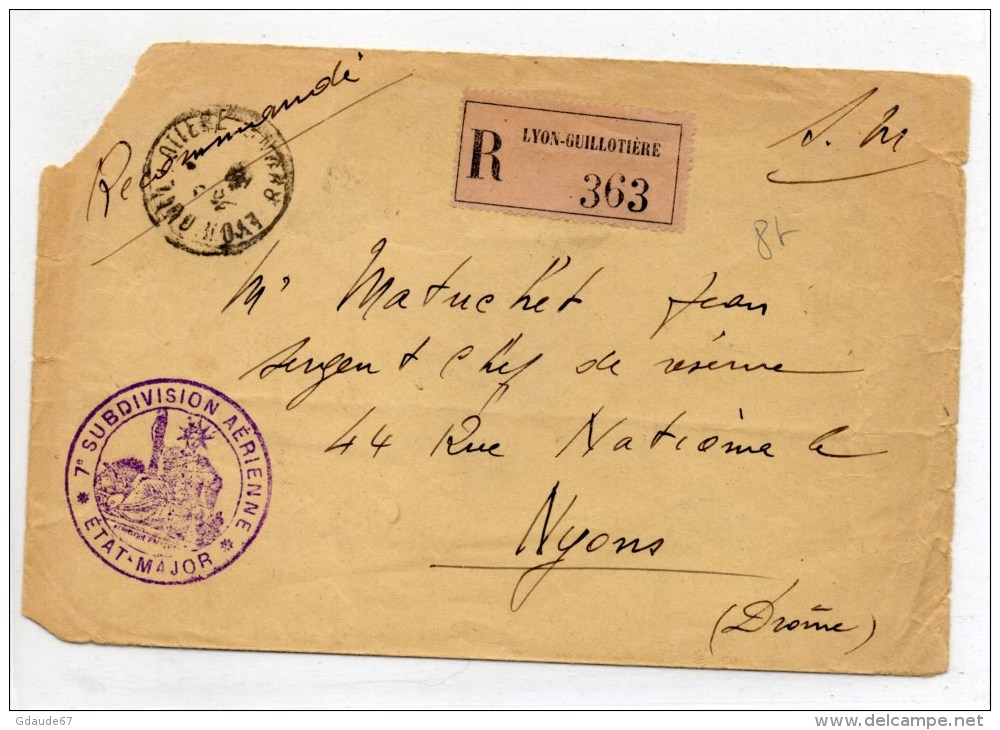 Recommandé
LYON-GUILLOTIÈRE
R
363
S. M
8t
Mr Matuchet Jean
sergent chef de réserve
44 Rue Nationale
Nyons
(Drôme)
LYON GUILLOTIERE RHONE
7e SUBDIVISION AÉRIENNE
* ÉTAT-MAJOR *
Gdaude67
delcampe.net